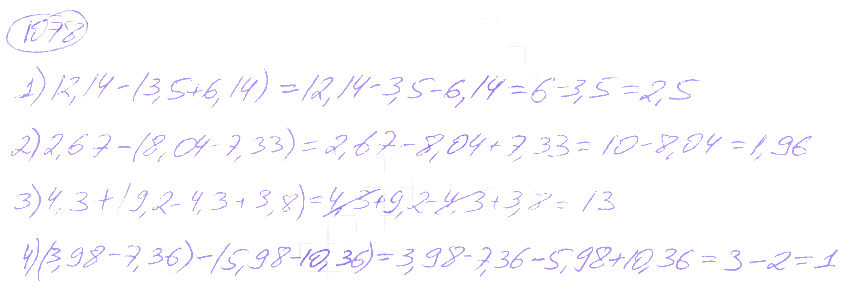 1078
1) 12,14-(3,5+6,14)=12,14-3,5-6,14=6-3,5=2,5
2) 2,67-(8,04-7,33)=2,67-8,04+7,33=10-8,04=1,96
3) 4,3+(9,2-4,3+3,8)=4,3+9,2-4,3+3,8=13
4) (3,98-7,36)-(5,98-10,36)=3,98-7,36-5,98+10,36=3-2=1